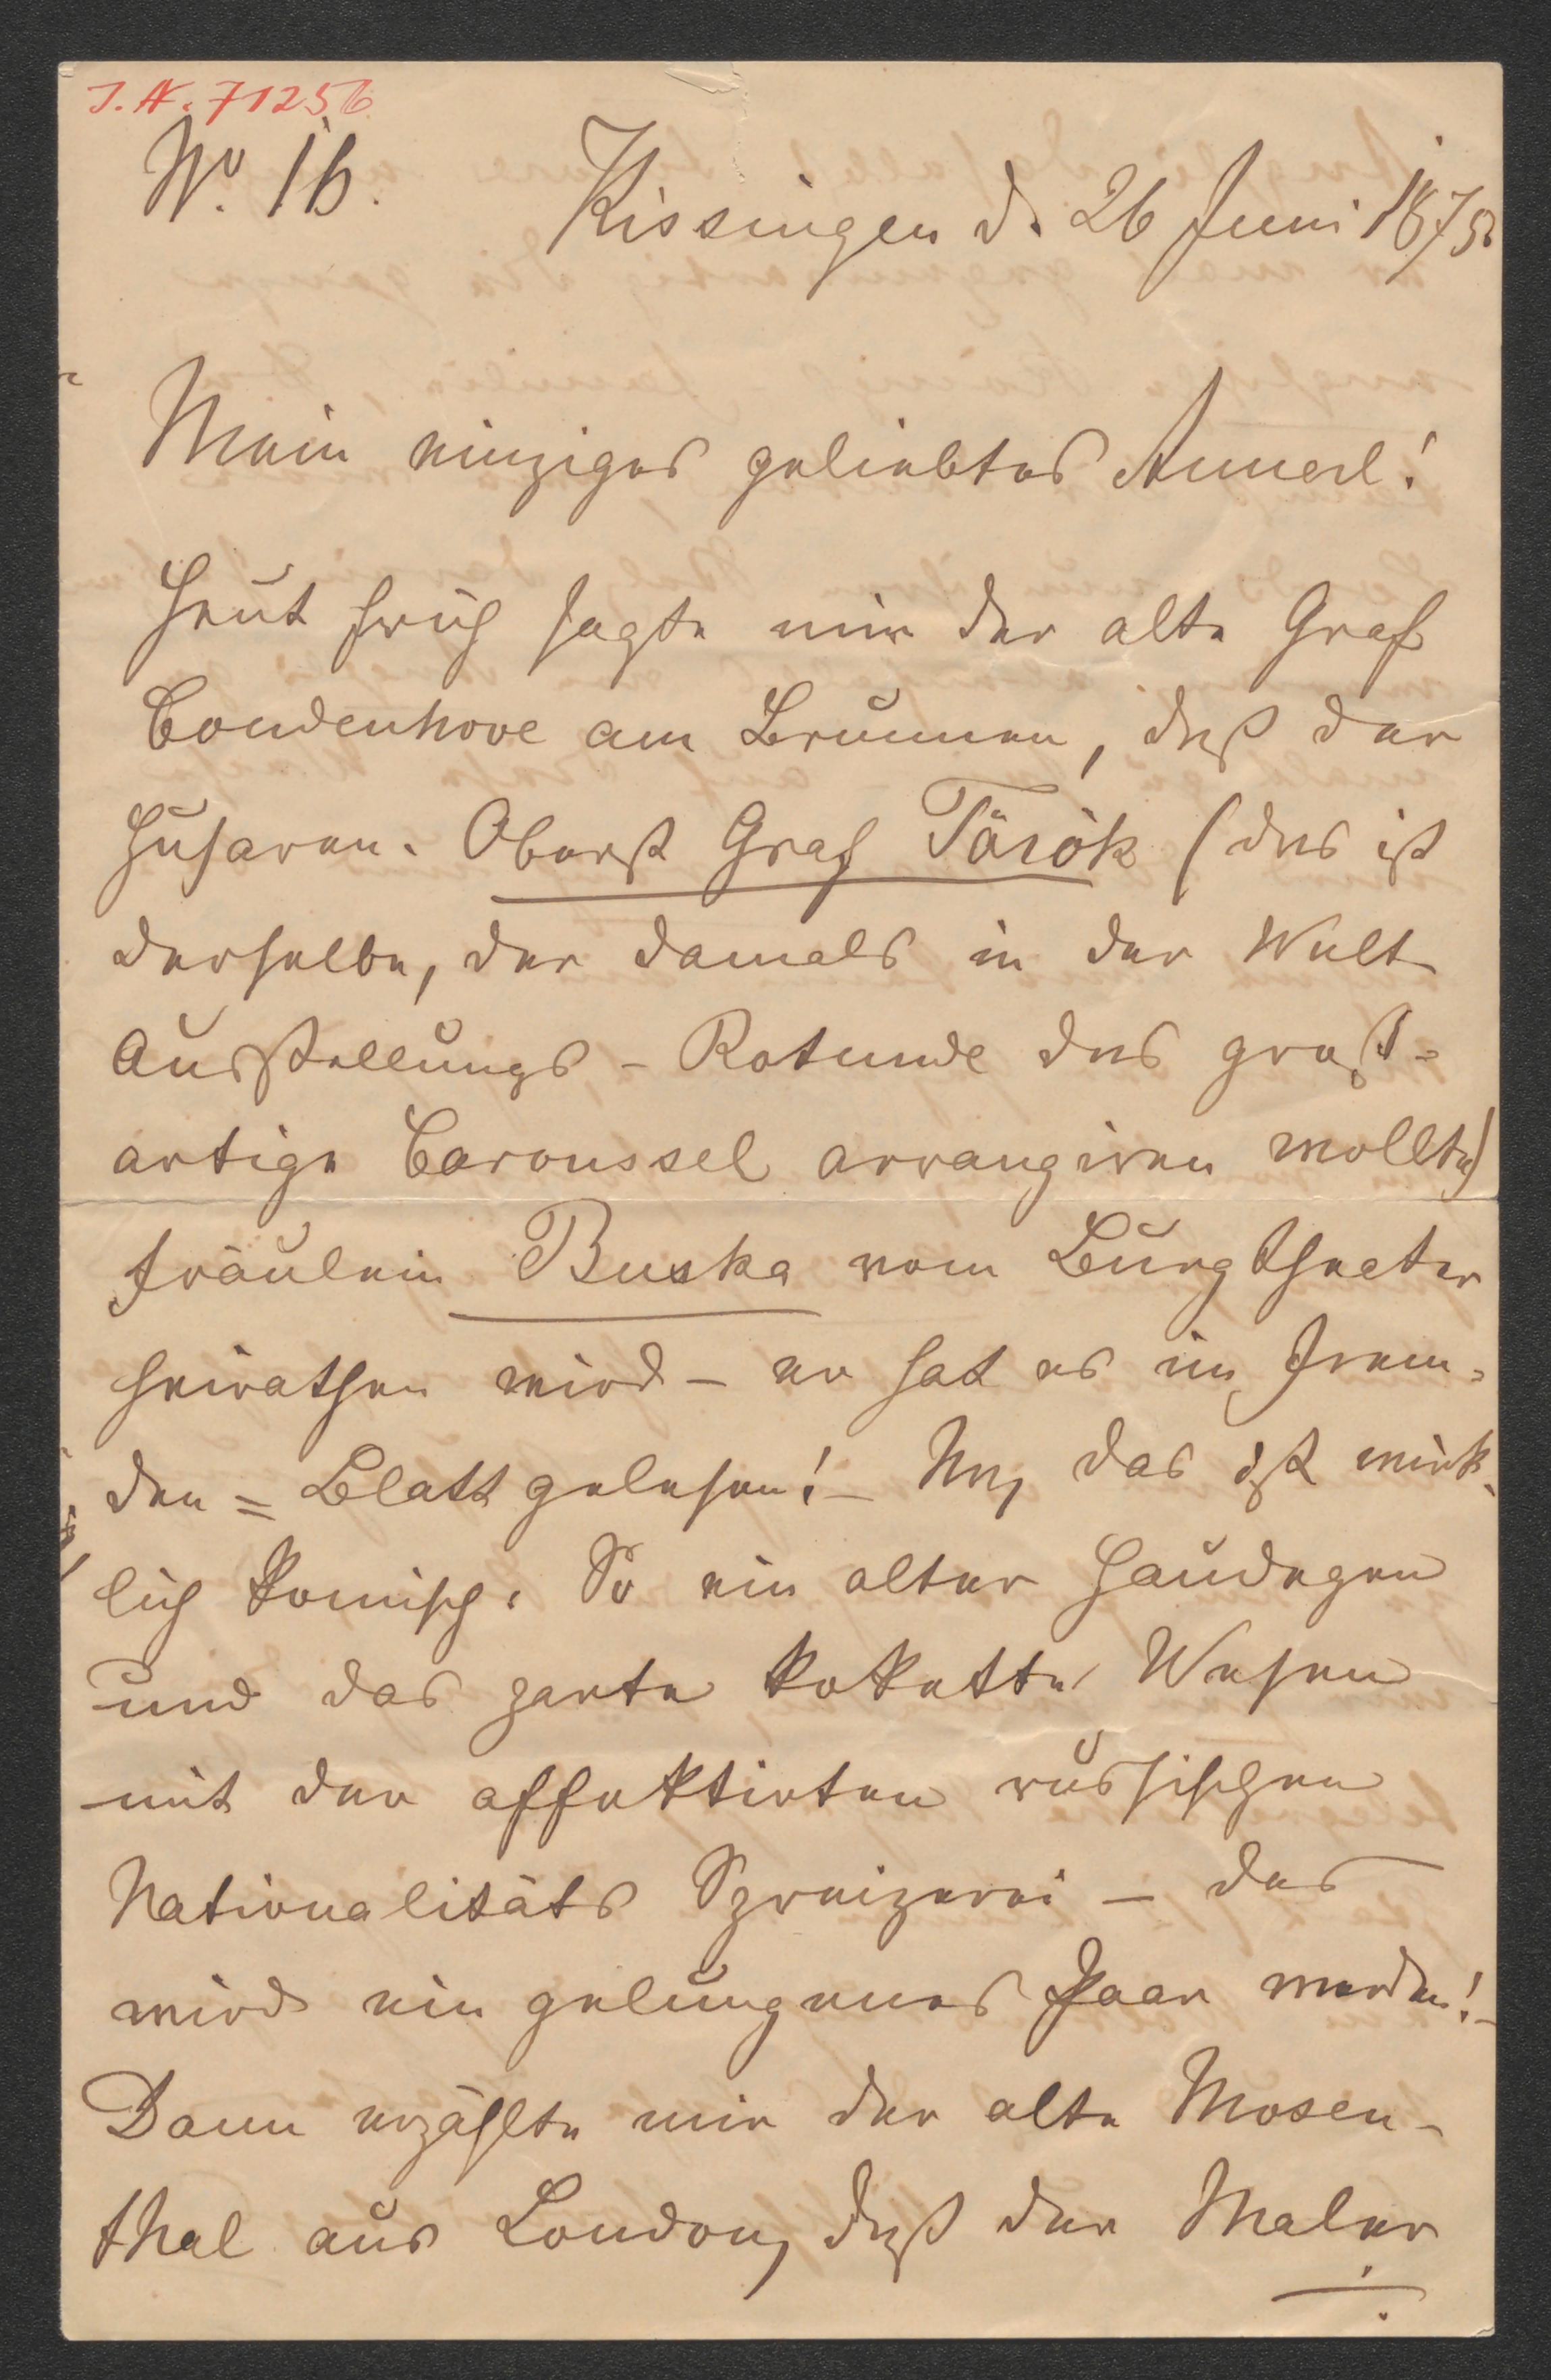 J. N. 71256
No. 16.
Kissingen d. 26 Juni 1875.
Mein einziges geliebtes Annerl!
Heut früh sagte mir der alte Graf
Coudenhove am Brunnen, daß der
Husaren-Oberst Graf Török (das ist
derselbe, der damals in der Welt
Ausstellungs-Rotunde das groß-
artige Caroussel arrangiren wollte)
Fräulein Buska vom Burgtheater
heirathen wird – er hat es im Frem-
den=Blatt gelesen! – Na, das ist wirk-
lich komisch. So ein alter Haudegen
und das zarte kokette Wesen
mit der affektirten russischen
Nationalitäts Spreizerei – das
wird ein gelungenes Paar werden! –
Dann erzählte mir der alte Mosen-
thal aus London, daß der Maler